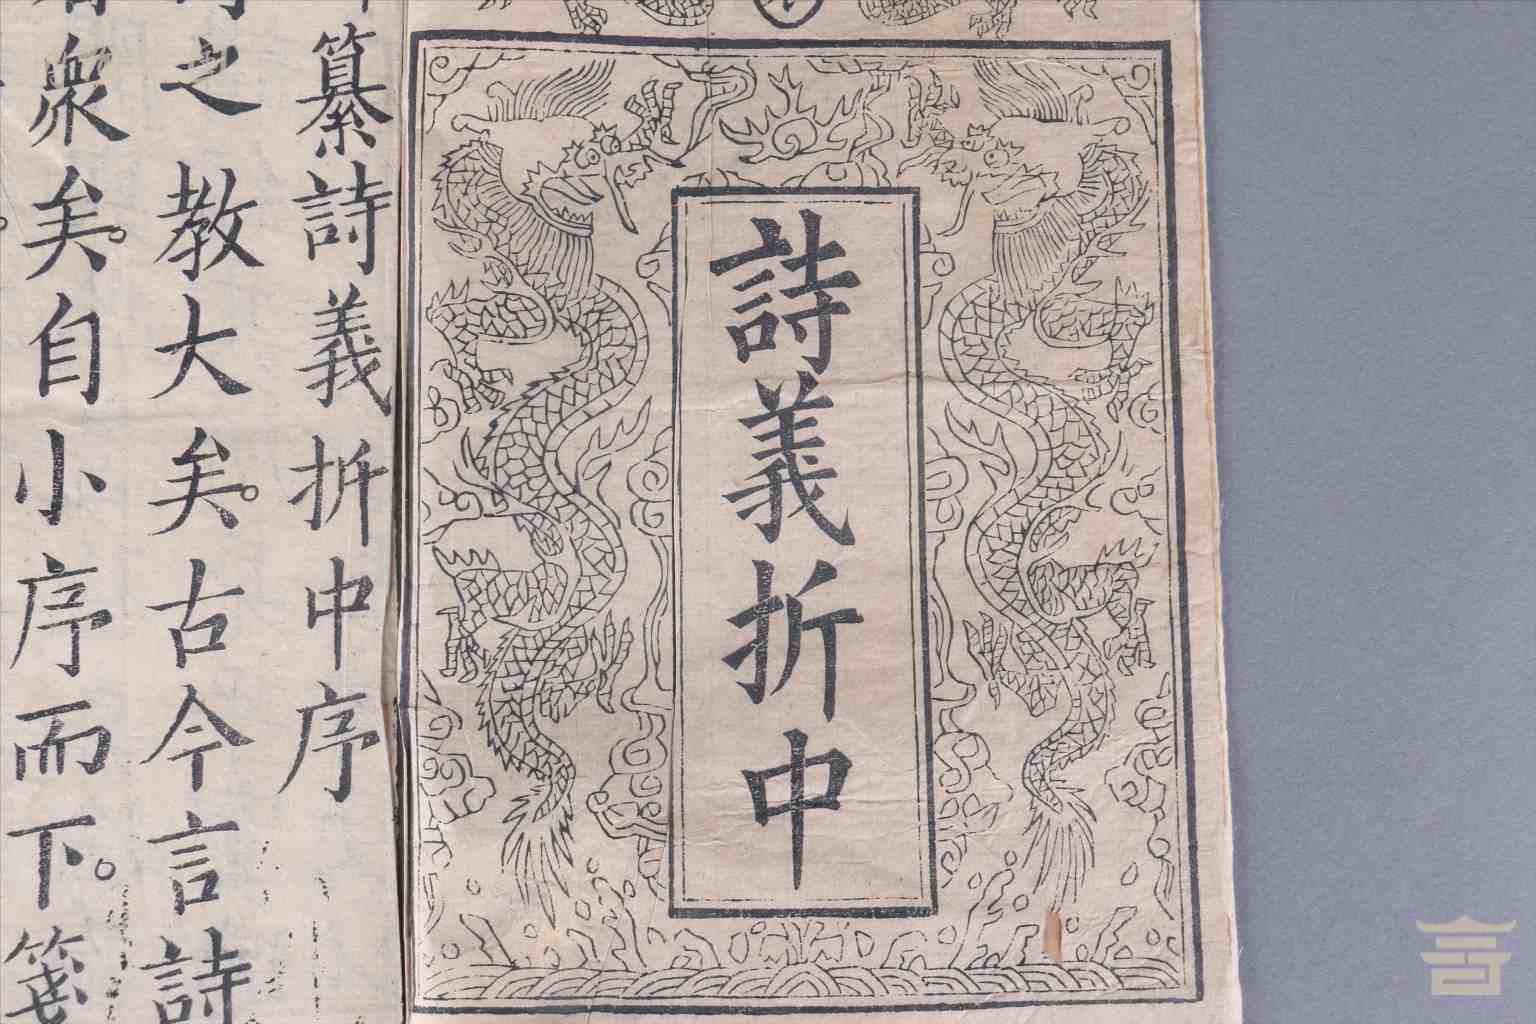 詩義折中
纂詩義折中序
之教大矣。古今言詩
衆矣。自小序而下。箋